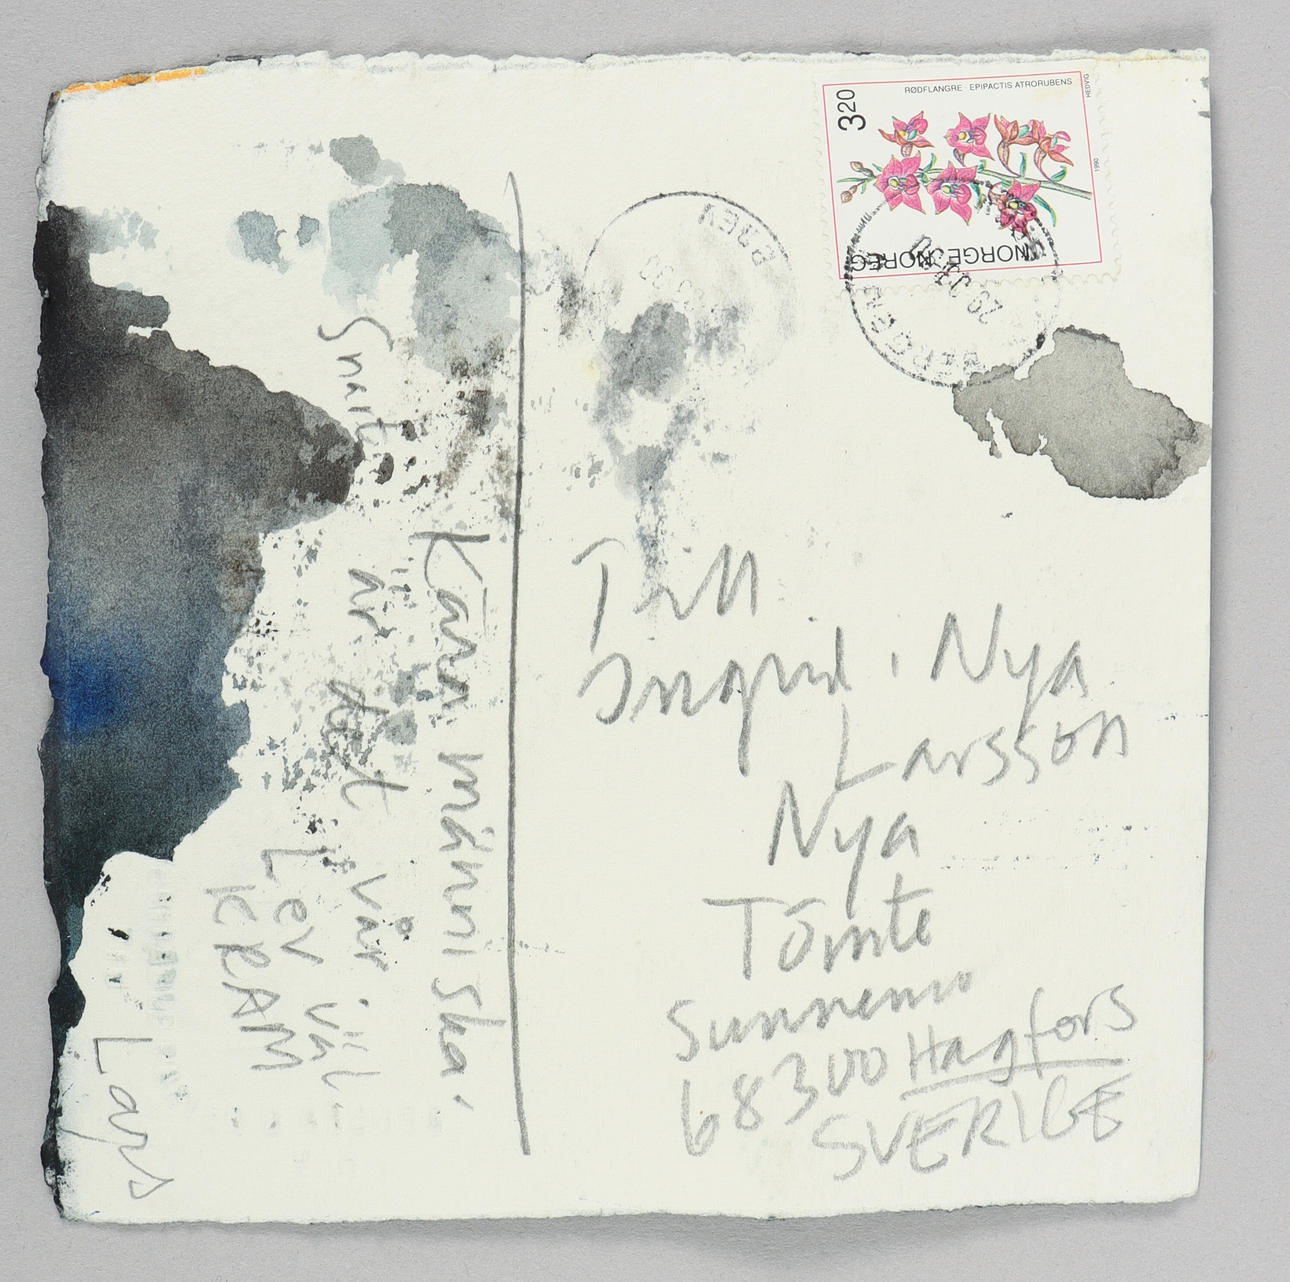 RØDFLANGRE · EPIPACTIS ATRORUBENS
HEDVIG
1990
3 20
NORGE · NOREG
BERGEN
Till
Ingrid. Nya
Larsson
Nya
Tomte
Sunnemo
68300 Hagfors
SVERIGE
Kära människa.
Snart är det vår
Lev väl
KRAM
Lars